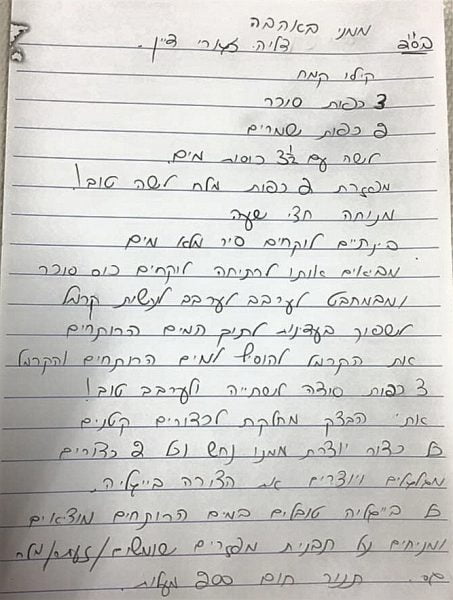 ממני באהבה
בס"ד דליה זעורי דיין.
קילו קמח
3 כפות סוכר
2 כפות שמרים
לשה עם 3½ כוסות מים.
מפזרת 2 כפות מלח לשה טוב!
מנוחה חצי שעה
בינתיים לוקחים סיר מלא מים
מביאים אותו לרתיחה לוקחים כוס סוכר
ובמחבט לערבב לערבב לעשית קרמל
לשפוך בעדינות לתוך המים הרותחים
את הקרמל להוסיף למים הרותחים והקרמל
3 כפות סודה לשתייה ולערבב טוב!
את הבצק מחלקת לכדורים קטנים
כל כדור יוצרת ממנו נחש וכל 2 כדורים
מגלגלים ויוצרים את הצורה בייגליה.
כל בייגליה טובלים במים הרותחים מוצאים
ומניחים על תבנית מפזרים שומשים/זעתר/מלח
גס. תנור חום 200 מעלות.